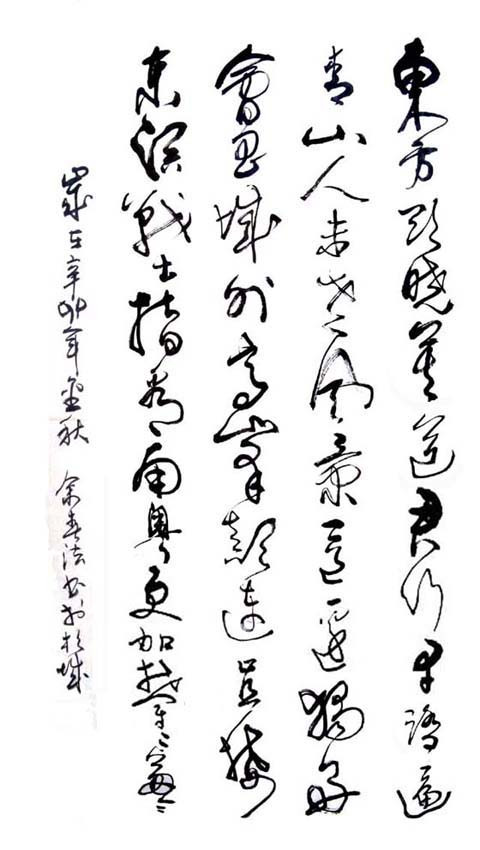 東方欲曉莫道君行早踏遍
青山人未老風景這邊獨好
會昌城外高峰顛連直接
東溟戰士指看南粵更加鬱鬱葱葱
歲在辛卯年金秋 余春法書於杭城